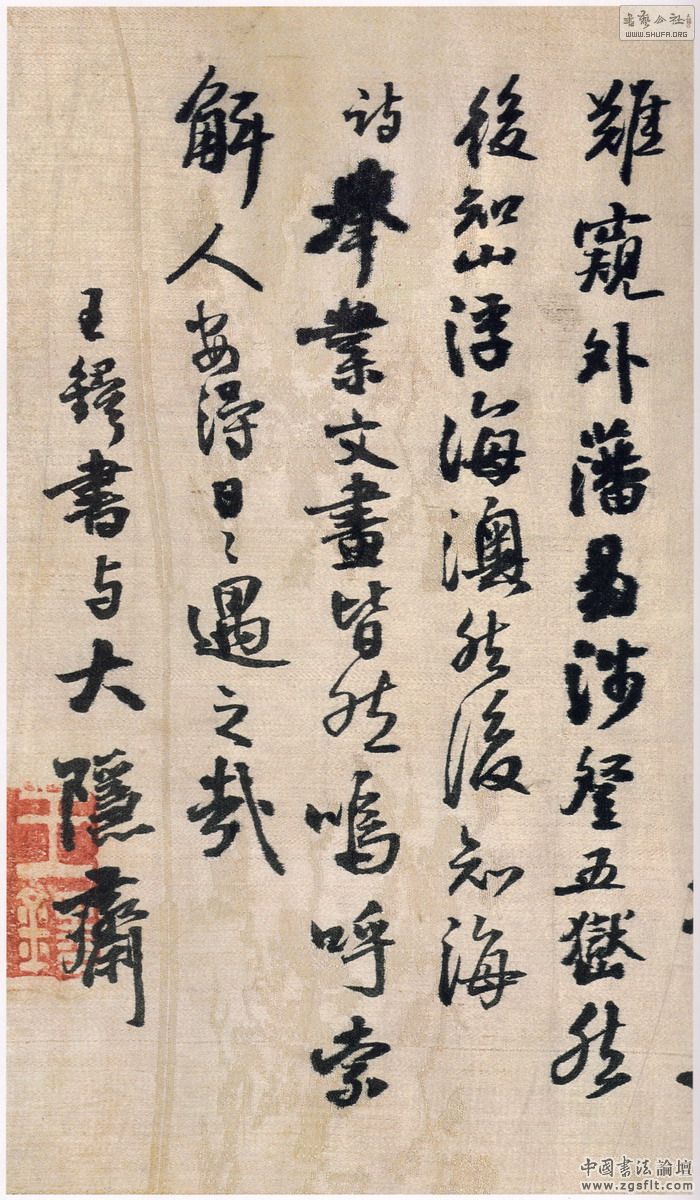 難窺外藩易涉登五嶽然
後知山浮海澳然後知海
詩舉業文畫皆然嗚呼索
解人安得日〻遇之哉
王鐸書与大隱齋
書藝公社
WWW.SHUFA.ORG
中国書法論壇
www.zgsflt.com